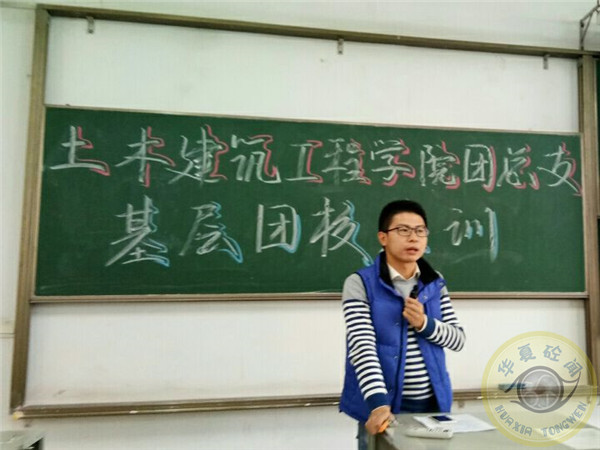 土木建筑工程学院团总支
基层团校 训
华夏砼闻
HUAXIA TONGWEN